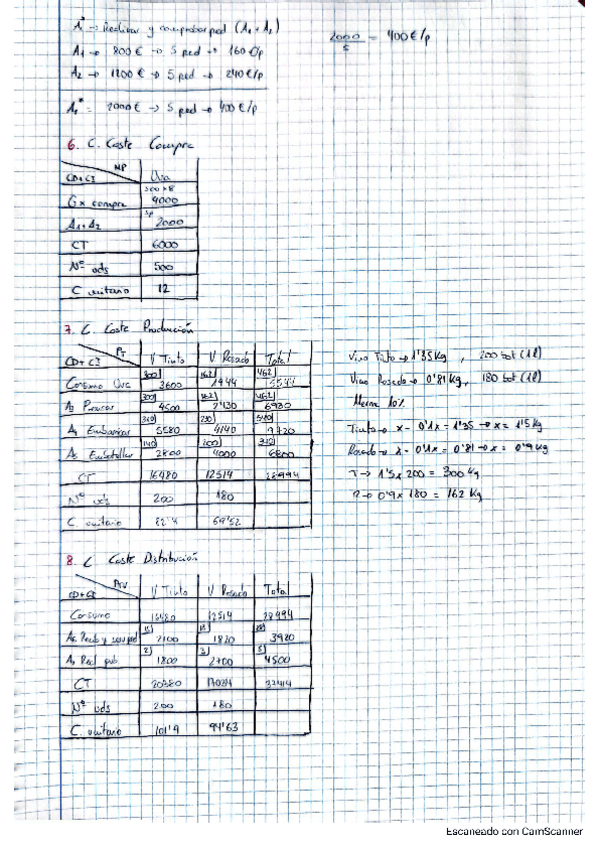 A* → Realizar y comprobar ped (A1 + A2)
A1 → 800 € → 5 ped → 160 €/p
A2 → 1200 € → 5 ped → 240 €/p
A1* = 2000 € → 5 ped → 400 €/p
2000/5 = 400 €/p
6. C. Coste Compra
CD+CI MP Uva
500 x 8
Gx compra 4000
5p
A1+A2 2000
CT 6000
Nº uds 500
C unitario 12
7. C. Coste Producción
CD+CI PT V Tinto V Rosado Total
300 162 462
Consumo Uva 3600 1944 5544
300 162 462
A3 Procesar 4500 2430 6930
A4 Embarricar 5580 4140 9720
140 100
A5 Embotellar 2800 4000 6800
CT 16480 12514 28994
Nº uds 200 180
C unitario 82'4 69'52
Vino Tinto → 1'35 Kg, 200 bot (1l)
Vino Rosado → 0'81 Kg, 180 bot (1l)
Merma 10%
Tinto → x - 0'1x = 1'35 → x = 1'5 Kg
Rosado → x - 0'1x = 0'81 → x = 0'9 Kg
T → 1'5 x 200 = 300 Kg
R → 0'9 x 180 = 162 Kg
8. C Coste Distribución
CD+CI V Tinto V Rosado Total
Consumo 16480 12514 28994
2100 1820 3920
2 3 5
A7 Real pub 1800 2700 4500
CT 20380 17034
Nº uds 200 180
C. unitario 101'9 94'63
Escaneado con CamScanner